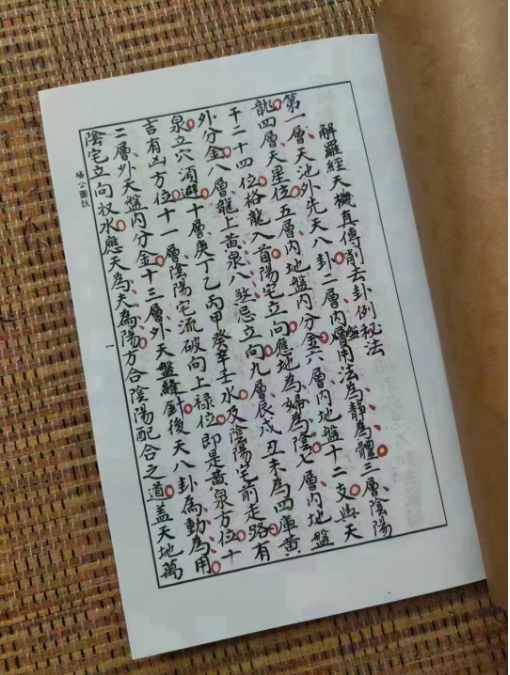 解羅經天機真傳削去卦例秘法
第一層天池外先天八卦二層內盤層用法為靜為體三層陰陽
龍四層天星位五層內地盤內分金六層內地盤十二支與天
干二十四位格龍入首陽宅立向應地為婦為陰七層內地盤
外分金八層龍上黃泉八煞忌立向九層辰戌丑未為四庫黃
泉立穴須避十層庚丁乙丙甲癸辛壬水及陰陽宅前走路有
吉有凶方位十一層陰陽宅流破向上祿位即是黃泉方位十
二層外天盤內分金十三層外天盤縫針後天八卦為動為用
陰宅立向收水應天為夫為陽方合陰陽配合之道蓋天地萬
楊公圖說
一